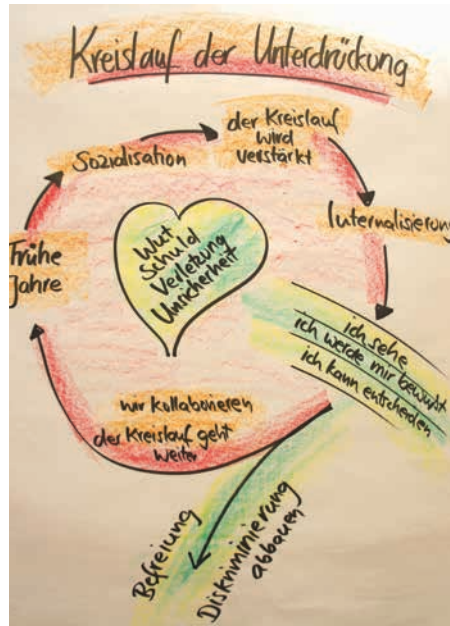 Kreislauf der Unterdrückung
Frühe
Jahre
Sozialisation
der Kreislauf
wird
verstärkt
Internalisierung
Wut
Schuld
Verletzung
Unsicherheit
ich sehe
ich werde mir bewußt
ich kann entscheiden
wir kollaborieren
der Kreislauf geht
weiter
Befreiung
Diskriminierung
abbauen